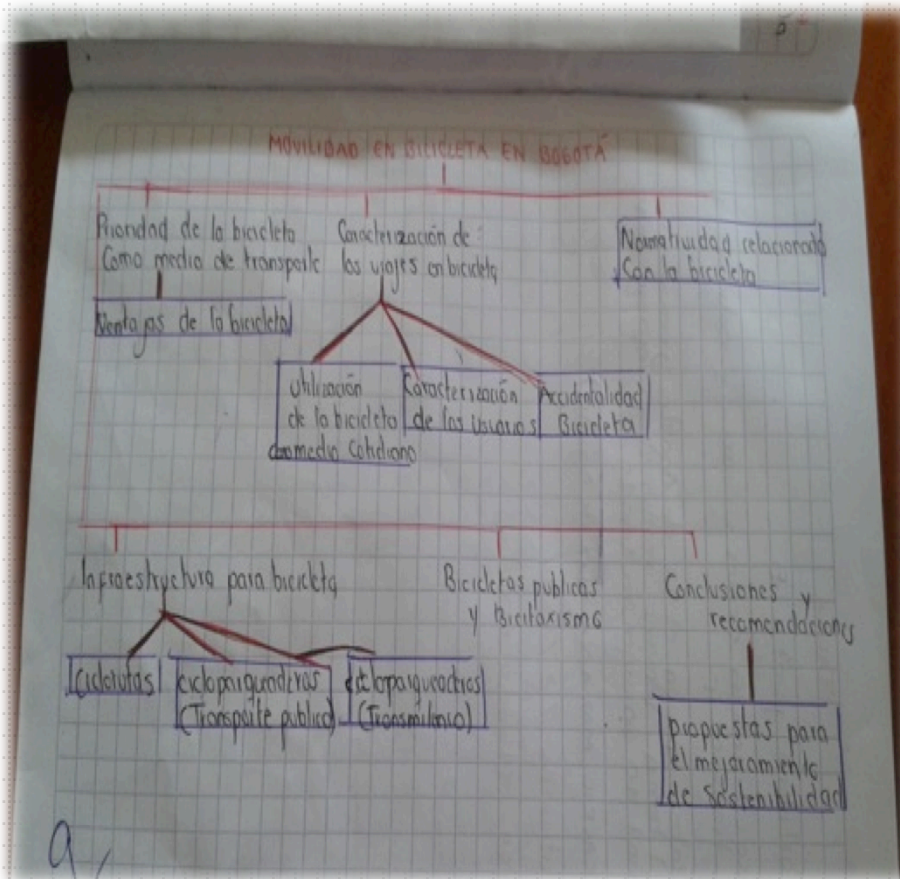 MOVILIDAD EN BICICLETA EN BOGOTÁ
Prioridad de la bicicleta
Como medio de transporte
Ventajas de la bicicleta
Caracterización de
los viajes en bicicleta
Normatividad relacionada
Con la bicicleta
Utilización
de la bicicleta
como medio Cotidiano
Caracterización
de los usuarios
Accidentalidad
Bicicleta
Infraestructura para bicicleta
Bicicletas publicas
y Bicitaxismo
Conclusiones y
recomendaciones
Ciclorutas
cicloparqueaderos
(Transporte publico)
cicloparqueaderos
(Transmilenio)
propuestas para
el mejoramiento
de sostenibilidad